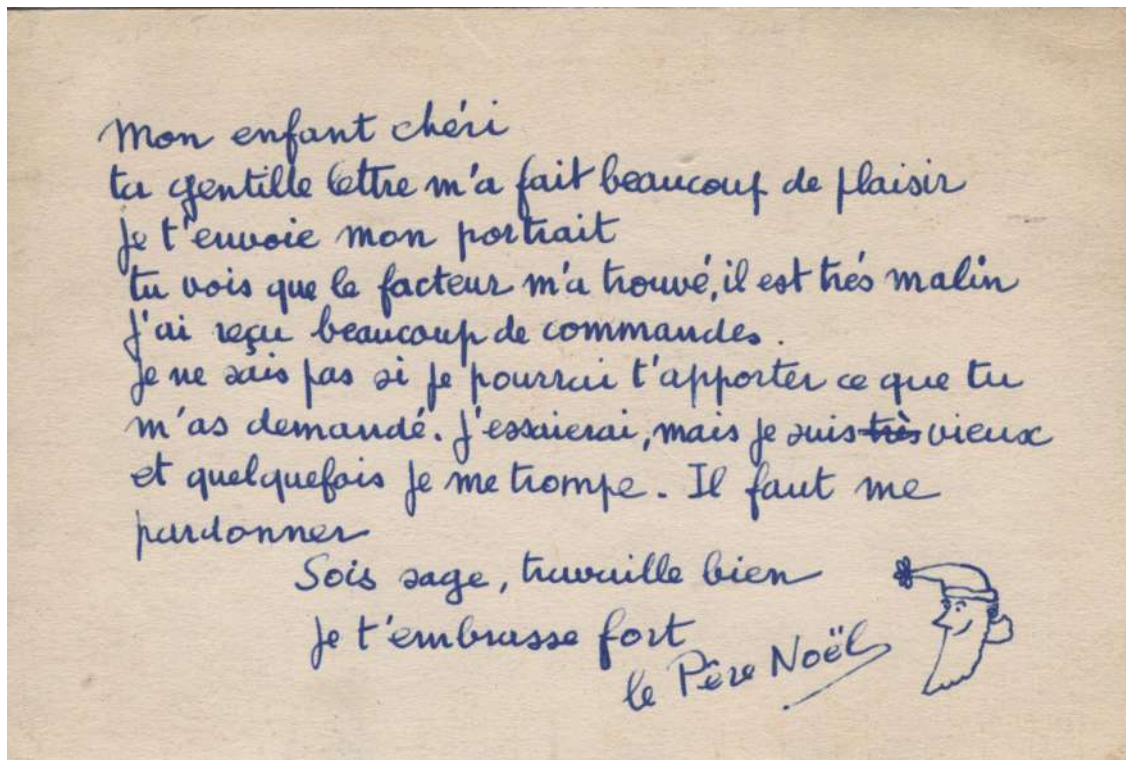 Mon enfant chéri
ta gentille lettre m'a fait beaucoup de plaisir
je t'envoie mon portrait
tu vois que le facteur m'a trouvé, il est trés malin
J'ai reçu beaucoup de commandes.
Je ne sais pas si je pourrai t'apporter ce que tu
m'as demandé. J'essaierai, mais je suis très vieux
et quelquefois je me trompe. Il faut me
pardonner
Sois sage, travaille bien
je t'embrasse fort
le Père Noël